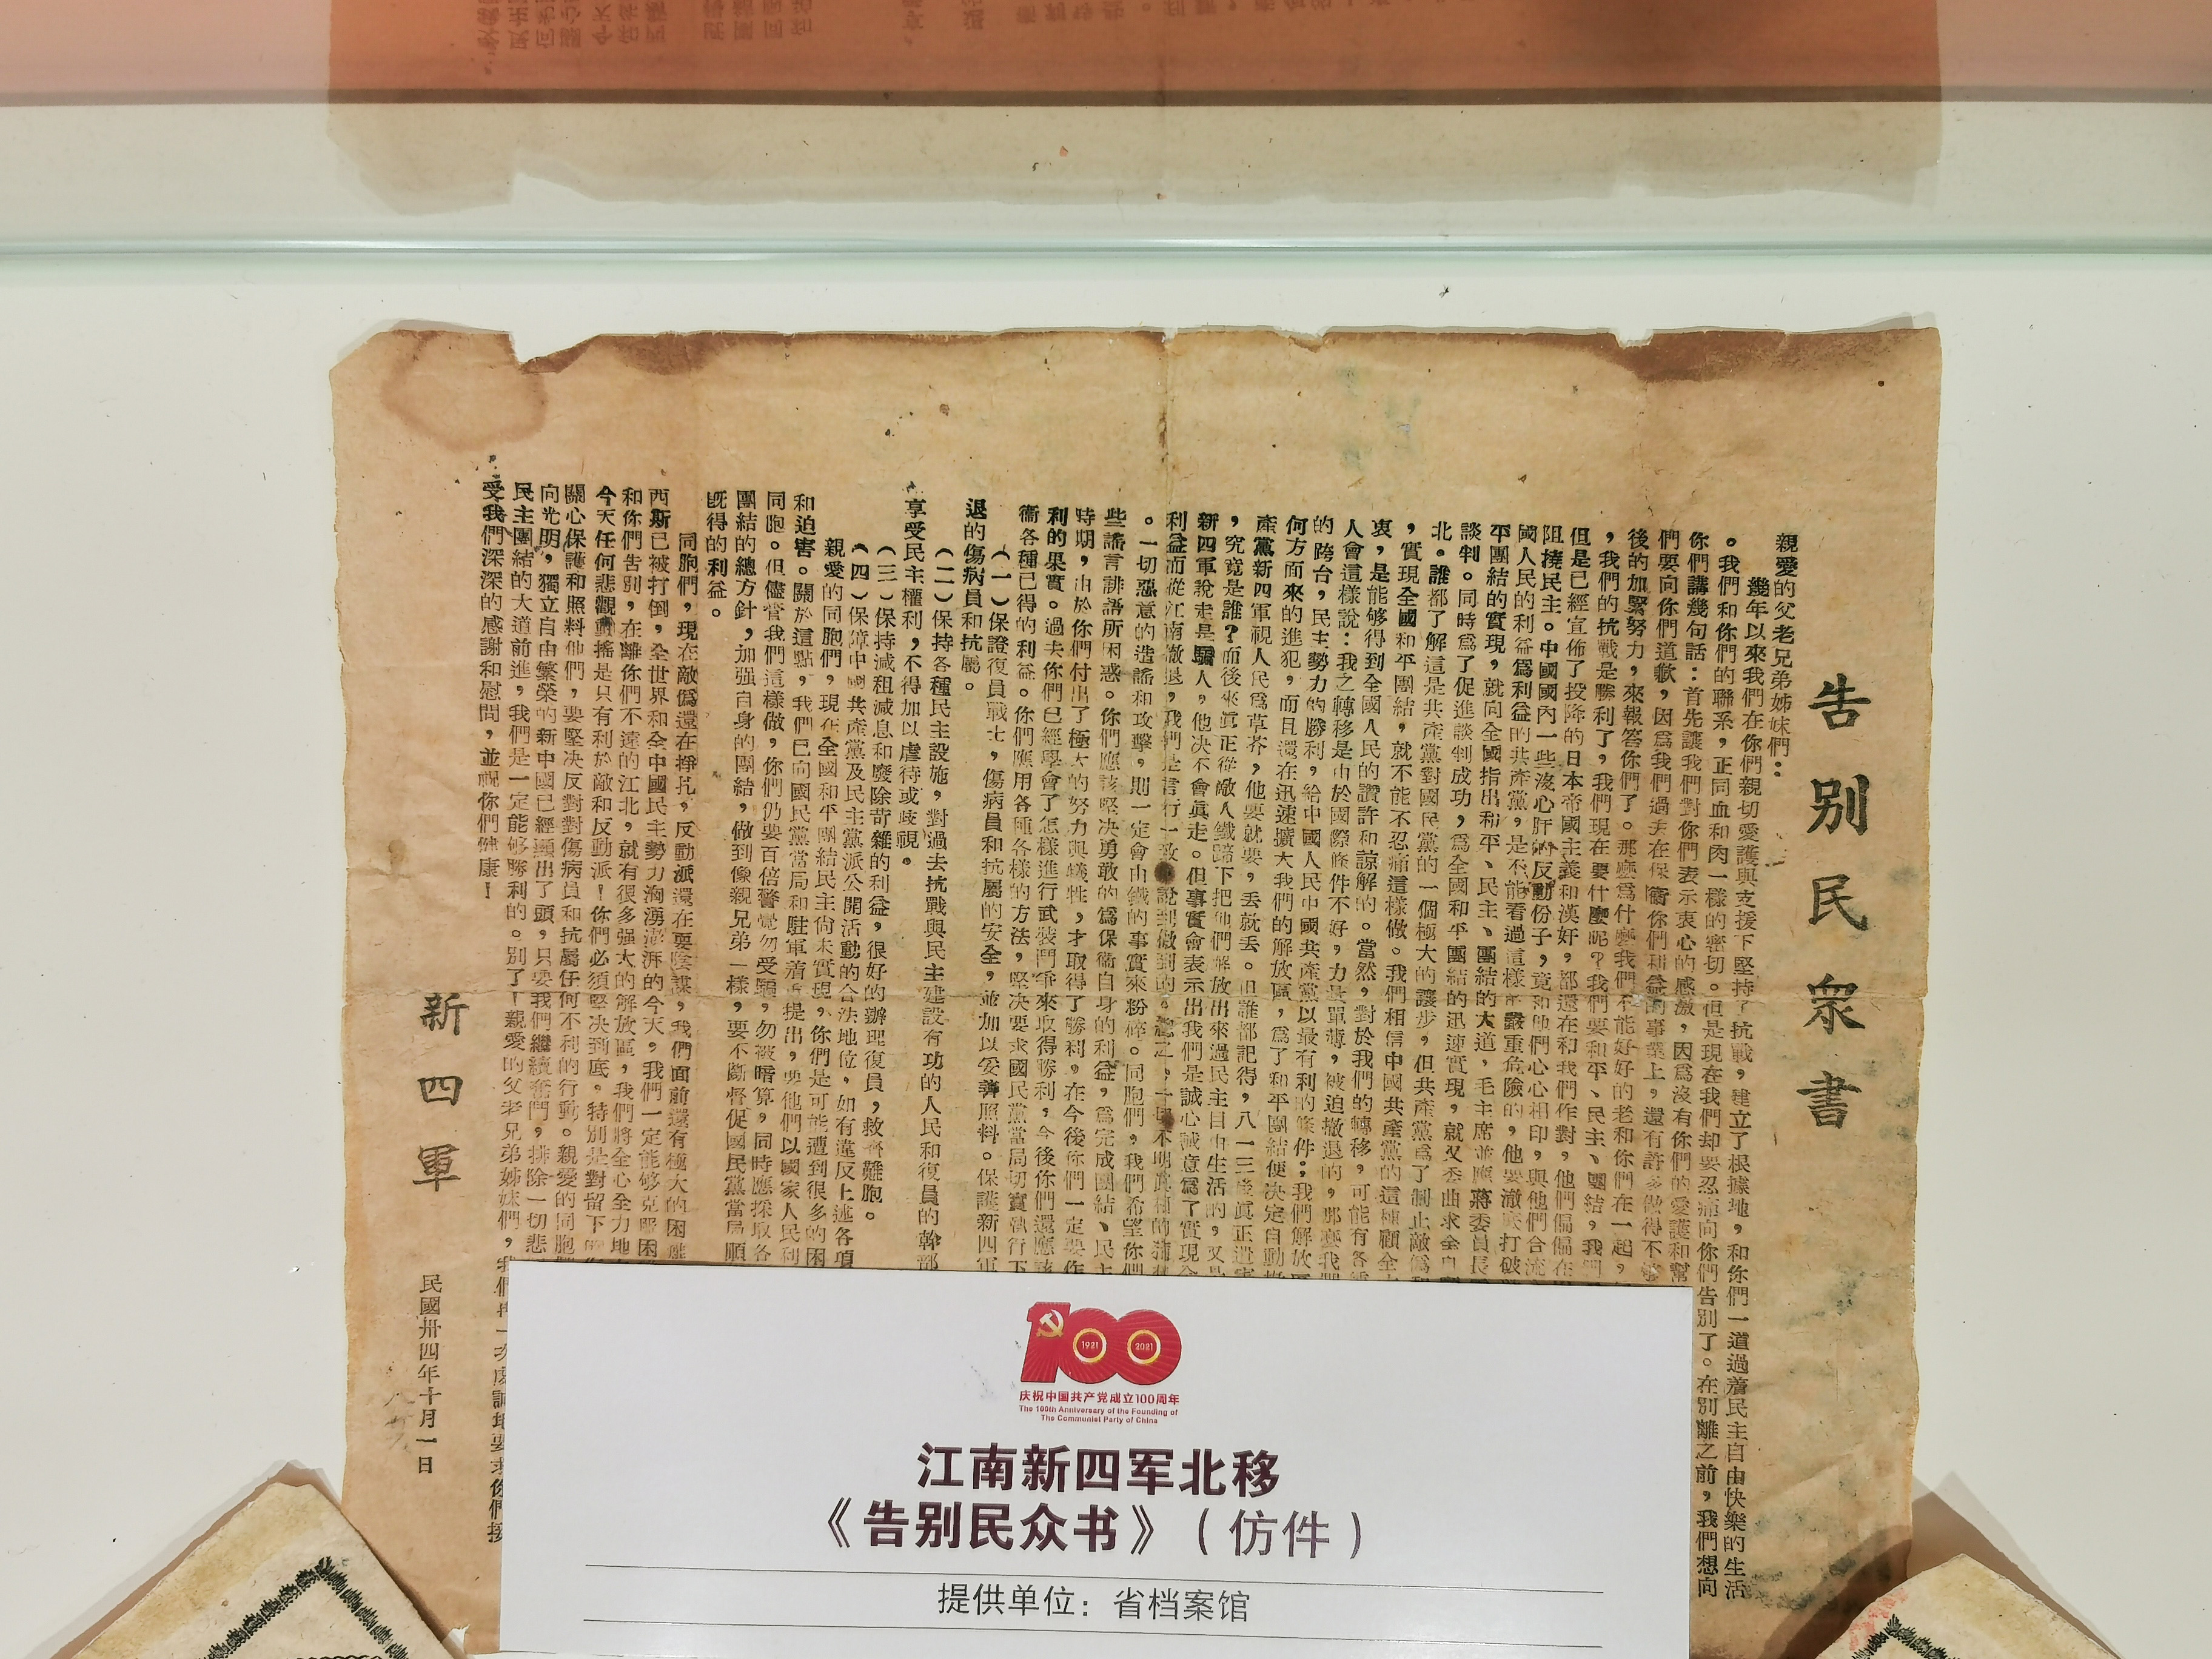 告别民衆書
親愛的父老兄弟姊妹們：
幾年以來我們在你們親切愛護與支援下堅持了抗戰，建立了根據地，和你們一道過着民主自由快樂的生活
。我們和你們的聯系，正同血和肉一樣的密切。但是現在我們却要忍痛向你們告別了。在別離之前，我們想向
你們講幾句話：首先讓我們對你們表示衷心的感激，因爲沒有你們的愛護和幫
們要向你們道歉，因爲我們過去在保衞你們利益的事業上，還有許多做得不
後的加緊努力，來報答你們了。那麽爲什麽我們不能好好的老和你們在一起，
，我們的抗戰是勝利了，我們現在要什麽呢？我們要和平、民主、團結，我們
但是已經宣佈了投降的日本帝國主義和漢奸，都還在和我們作對，他們偏偏在
阻撓民主。中國國內一些沒心肝的反動份子，竟和他們心心相印，與他們合流
國人民的利益爲利益的共產黨，是不能看過這樣嚴重危險的，他要澈底打破
平團結的實現，就向全國指出和平、民主、團結的大道，毛主席並應蔣委員長
談判。同時爲了促進談判成功，爲全國和平團結的迅速實現，就又委曲求全自
北。誰都了解這是共產黨對國民黨的一個極大的讓步，但共產黨爲了制止敵僞
，實現全國和平團結，就不能不忍痛這樣做。我們相信中國共產黨的這種顧全
衷，是能够得到全國人民的讚許和諒解的。當然，對於我們的轉移，可能有各
人會這樣說：我之轉移是由於國際條件不好，力量單薄，被迫撤退的，那麽我
的跨台，民主勢力的勝利，給中國人民中國共產黨以最有利的條件；我們解放
何方面來的進犯，而且還在迅速擴大我們的解放區，爲了和平團結便决定自動
產黨新四軍視人民爲草芥，他要就要，丢就丢。但誰都記得，八一三後眞正
，究竟是誰？而後來眞正從敵人鐵蹄下把他們解放出來過民主自由生活的，又
新四軍說走是騙人，他决不會眞走。但事實會表示出我們是誠心誠意爲了實現
利益而從江南撤退，我們是言行一致，說到做到的。總之，一切不明眞相的
。一切惡意的造謠和攻擊，則一定會由鐵的事實來粉碎。同胞們，我們希望你們
些謠言誹語所困惑。你們應該堅决勇敢的爲保衞自身的利益，爲完成團結、民主
時期，由於你們付出了極大的努力與犧牲，才取得了勝利，在今後你們一定要
利的果實。過去你們已經學會了怎樣進行武裝鬥爭來取得勝利，今後你們還應該
衞各種已得的利益。你們應用各種各樣的方法，堅决要求國民黨當局切實執行下
（一）保證復員戰士，傷病員和抗屬的安全，並加以妥善照料。保護新四軍
退的傷病員和抗屬。
（二）保持各種民主設施，對過去抗戰與民主建設有功的人民和復員的幹部
享受民主權利，不得加以虐待或歧視。
（三）保持減租減息和廢除苛雜的利益，很好的辦理復員，救濟難胞。
（四）保障中國共產黨及民主黨派公開活動的合法地位，如有違反上述各項
親愛的同胞們，現在全國和平團結民主尚未實現，你們是可能遭到很多的困
和迫害。關於這點，我們已向國民黨當局和駐軍着重提出，要他們以國家人民利
同胞。但儘管我們這樣做，你們仍要百倍警覺勿受騙，勿被暗算，同時應採取各
團結的總方針，加强自身的團結，做到像親兄弟一樣，要不斷督促國民黨當局順
既得的利益。
同胞們，現在敵僞還在掙扎，反動派還在耍陰謀，我們面前還有極大的困難
西斯已被打倒，全世界和全中國民主勢力洶湧澎湃的今天，我們一定能够克服困
和你們告別，在離你們不遠的江北，就有很多强大的解放區，我們將全心全力地
今天任何悲觀動搖是只有利於敵和反動派！你們必須堅决到底。特別是對留下的
關心保護和照料他們，要堅决反對對傷病員和抗屬任何不利的行動。親愛的同胞
向光明，獨立自由繁榮的新中國已經顯出了頭，只要我們繼續奮鬥，排除一切悲
民主團結的大道前進，我們是一定能够勝利的。別了！親愛的父老兄弟姊妹們，我
受我們深深的感謝和慰問，並祝你們健康！
新四軍
民國卅四年十月一日
100
1921
2021
庆祝中国共产党成立100周年
The 100th Anniversary of the Founding of
The Communist Party of China
江南新四军北移
《告别民众书》（仿件）
提供单位：省档案馆